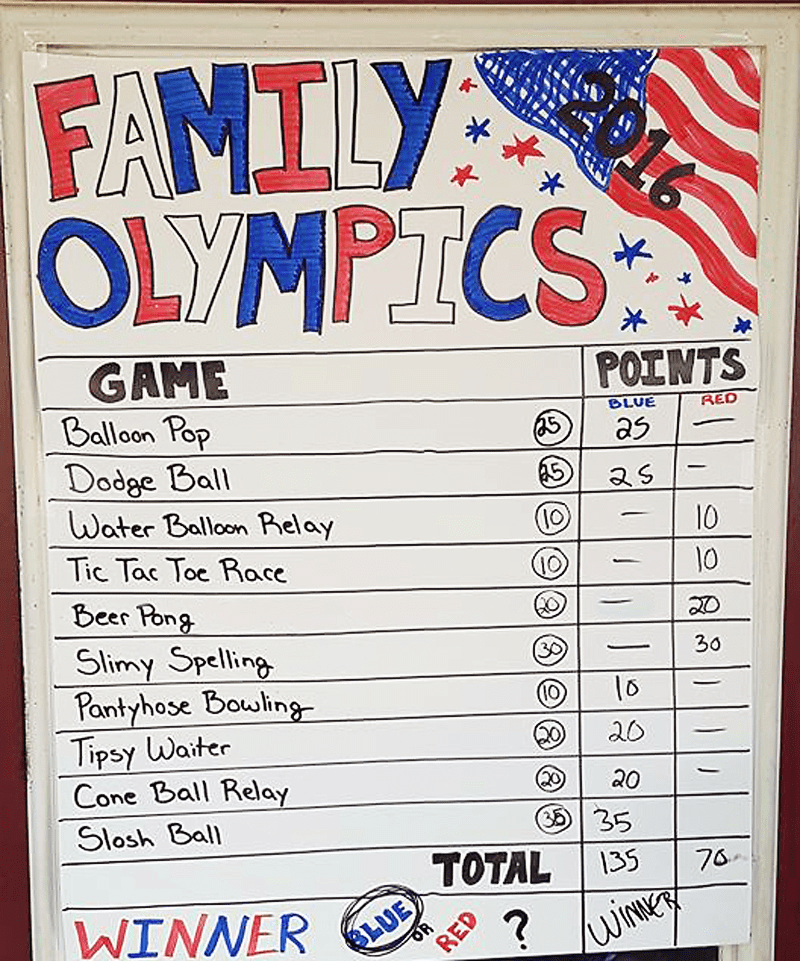 FAMILY 2016
OLYMPICS
GAME POINTS
BLUE RED
Balloon Pop 25 25 —
Dodge Ball 25 25 —
Water Balloon Relay 10 — 10
Tic Tac Toe Race 10 — 10
Beer Pong 20 — 20
Slimy Spelling 30 — 30
Pantyhose Bowling 10 10 —
Tipsy Waiter 20 20 —
Cone Ball Relay 20 20 —
Slosh Ball 35 35
TOTAL 135 70
WINNER BLUE OR RED ? WINNER